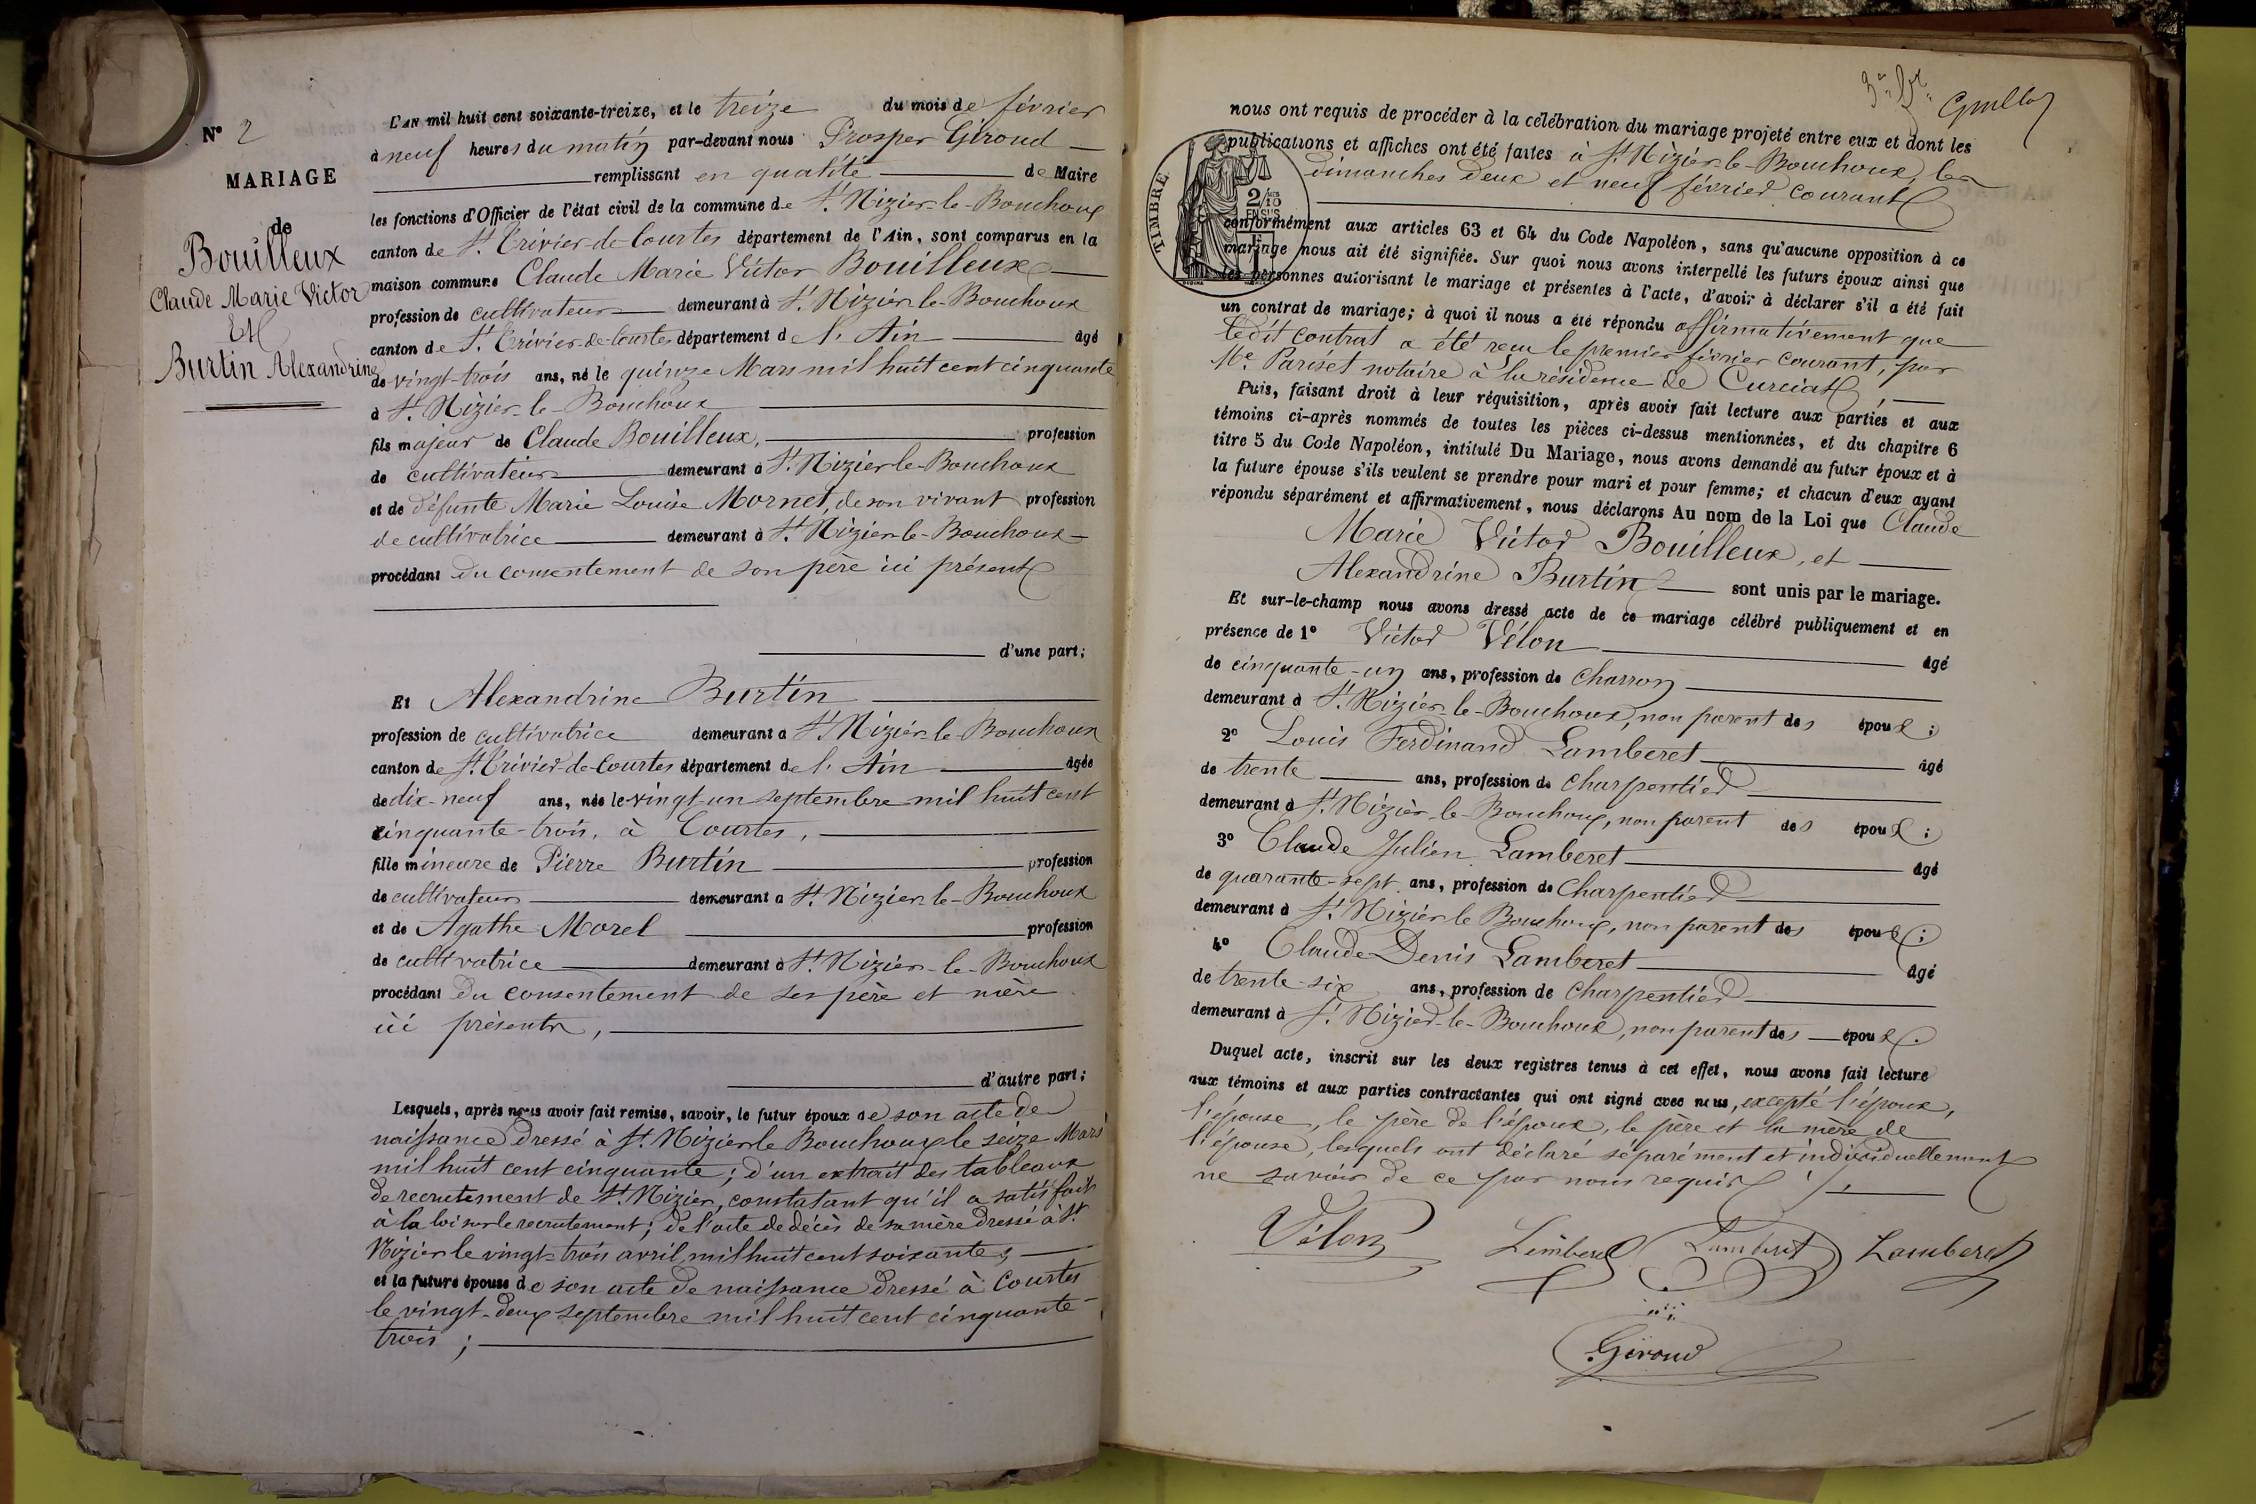 N° 2
MARIAGE
de
Bouilleux
Claude Marie Victor
Et
Burtin Alexandrine
L'AN mil huit cent soixante-treize, et le treize du mois de février
à neuf heures du matin par-devant nous Prosper Giroud
remplissant en qualité de Maire
les fonctions d'Officier de l'état civil de la commune de St. Nizier-le-Bouchoux
canton de St. Trivier-de-Courtes département de l'Ain, sont comparus en la
maison commune Claude Marie Victor Bouilleux
profession de cultivateur demeurant à St. Nizier-le-Bouchoux
canton de St. Trivier-de-Courtes département de l'Ain âgé
de vingt-trois ans, né le quinze Mars mil huit cent cinquante
à St. Nizier-le-Bouchoux
fils majeur de Claude Bouilleux, profession
de cultivateur demeurant à St. Nizier-le-Bouchoux
et de défunte Marie Louise Mornet, de son vivant profession
de cultivatrice demeurant à St. Nizier-le-Bouchoux
procédant du consentement de son père ici présent
d'une part;
Et Alexandrine Burtin
profession de cultivatrice demeurant à St. Nizier-le-Bouchoux
canton de St. Trivier-de-Courtes département de l'Ain âgée
de dix-neuf ans, née le vingt-un septembre mil huit cent
cinquante-trois, à Courtes,
fille mineure de Pierre Burtin profession
de cultivateur demeurant à St. Nizier-le-Bouchoux
et de Agathe Morel profession
de cultivatrice demeurant à St. Nizier-le-Bouchoux
procédant du consentement de ses père et mère
ici présents,
d'autre part;
Lesquels, après nous avoir fait remise, savoir, le futur époux de son acte de
naissance dressé à St. Nizier le Bouchoux le seize Mars
mil huit cent cinquante; d'un extrait des tableaux
de recrutement de St. Nizier, constatant qu'il a satisfait
à la loi sur le recrutement; de l'acte de décès de sa mère dressé à St.
Nizier le vingt-trois avril mil huit cent soixante,
et la future épouse de son acte de naissance dressé à Courtes
le vingt-deux septembre mil huit cent cinquante-
trois;
nous ont requis de procéder à la célébration du mariage projeté entre eux et dont les
publications et affiches ont été faites à St. Nizier-le-Bouchoux, les
dimanches deux et neuf février courant
TIMBRE
2/10
EN SUS
conformément aux articles 63 et 64 du Code Napoléon, sans qu'aucune opposition à ce
mariage nous ait été signifiée. Sur quoi nous avons interpellé les futurs époux ainsi que
les personnes autorisant le mariage et présentes à l'acte, d'avoir à déclarer s'il a été fait
un contrat de mariage; à quoi il nous a été répondu affirmativement que
ledit contrat a été reçu le premier février courant, par
Me. Pariset notaire à la résidence de Curciat,
Puis, faisant droit à leur réquisition, après avoir fait lecture aux parties et aux
témoins ci-après nommés de toutes les pièces ci-dessus mentionnées, et du chapitre 6
titre 5 du Code Napoléon, intitulé Du Mariage, nous avons demandé au futur époux et à
la future épouse s'ils veulent se prendre pour mari et pour femme; et chacun d'eux ayant
répondu séparément et affirmativement, nous déclarons Au nom de la Loi que Claude
Marie Victor Bouilleux, et
Alexandrine Burtin sont unis par le mariage.
Et sur-le-champ nous avons dressé acte de ce mariage célébré publiquement et en
présence de 1° Victor Vélon âgé
de cinquante-un ans, profession de Charron
demeurant à St. Nizier-le-Bouchoux, non parent des époux;
2° Louis Ferdinand Lamberet âgé
de trente ans, profession de Charpentier
demeurant à St. Nizier-le-Bouchoux, non parent des époux;
3° Claude Julien Lamberet âgé
de quarante-sept ans, profession de Charpentier
demeurant à St. Nizier le Bouchoux, non parent des époux;
4° Claude Denis Lamberet âgé
de trente-six ans, profession de Charpentier
demeurant à St. Nizier-le-Bouchoux, non parent des époux.
Duquel acte, inscrit sur les deux registres tenus à cet effet, nous avons fait lecture
aux témoins et aux parties contractantes qui ont signé avec nous, excepté l'époux,
l'épouse, le père de l'époux, le père et la mère de
l'épouse, lesquels ont déclaré séparément et individuellement
ne savoir de ce par nous requis
Vélon Lamberet Lamberet Lamberet
Giroud